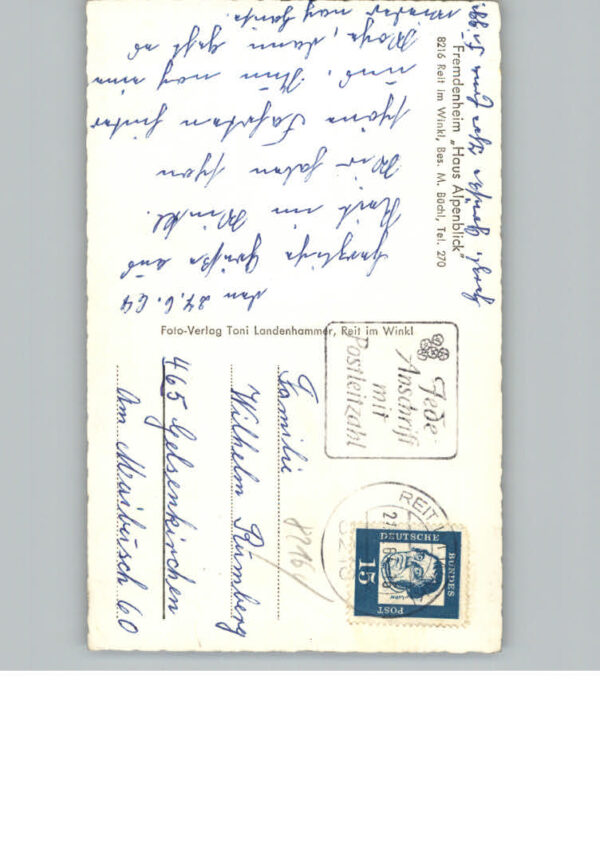 Fremdenheim „Haus Alpenblick"
8216 Reit im Winkl, Bes. M. Büchl, Tel. 270
den 24.6.64
Herzliche Grüße aus
Reit im Winkl.
Wir haben schon
schöne Fahrten hinter
uns. Nun noch eine
Woche, dann geht es
wieder nach Hause.
Herzl. Grüße
Foto-Verlag Toni Landenhammer, Reit im Winkl
Jede
Anschrift
mit
Postleitzahl
REIT I
8216
DEUTSCHE
BUNDES
POST
15
Familie
Wilhelm Rümberg
465 Gelsenkirchen
Am Maibusch 60
8216